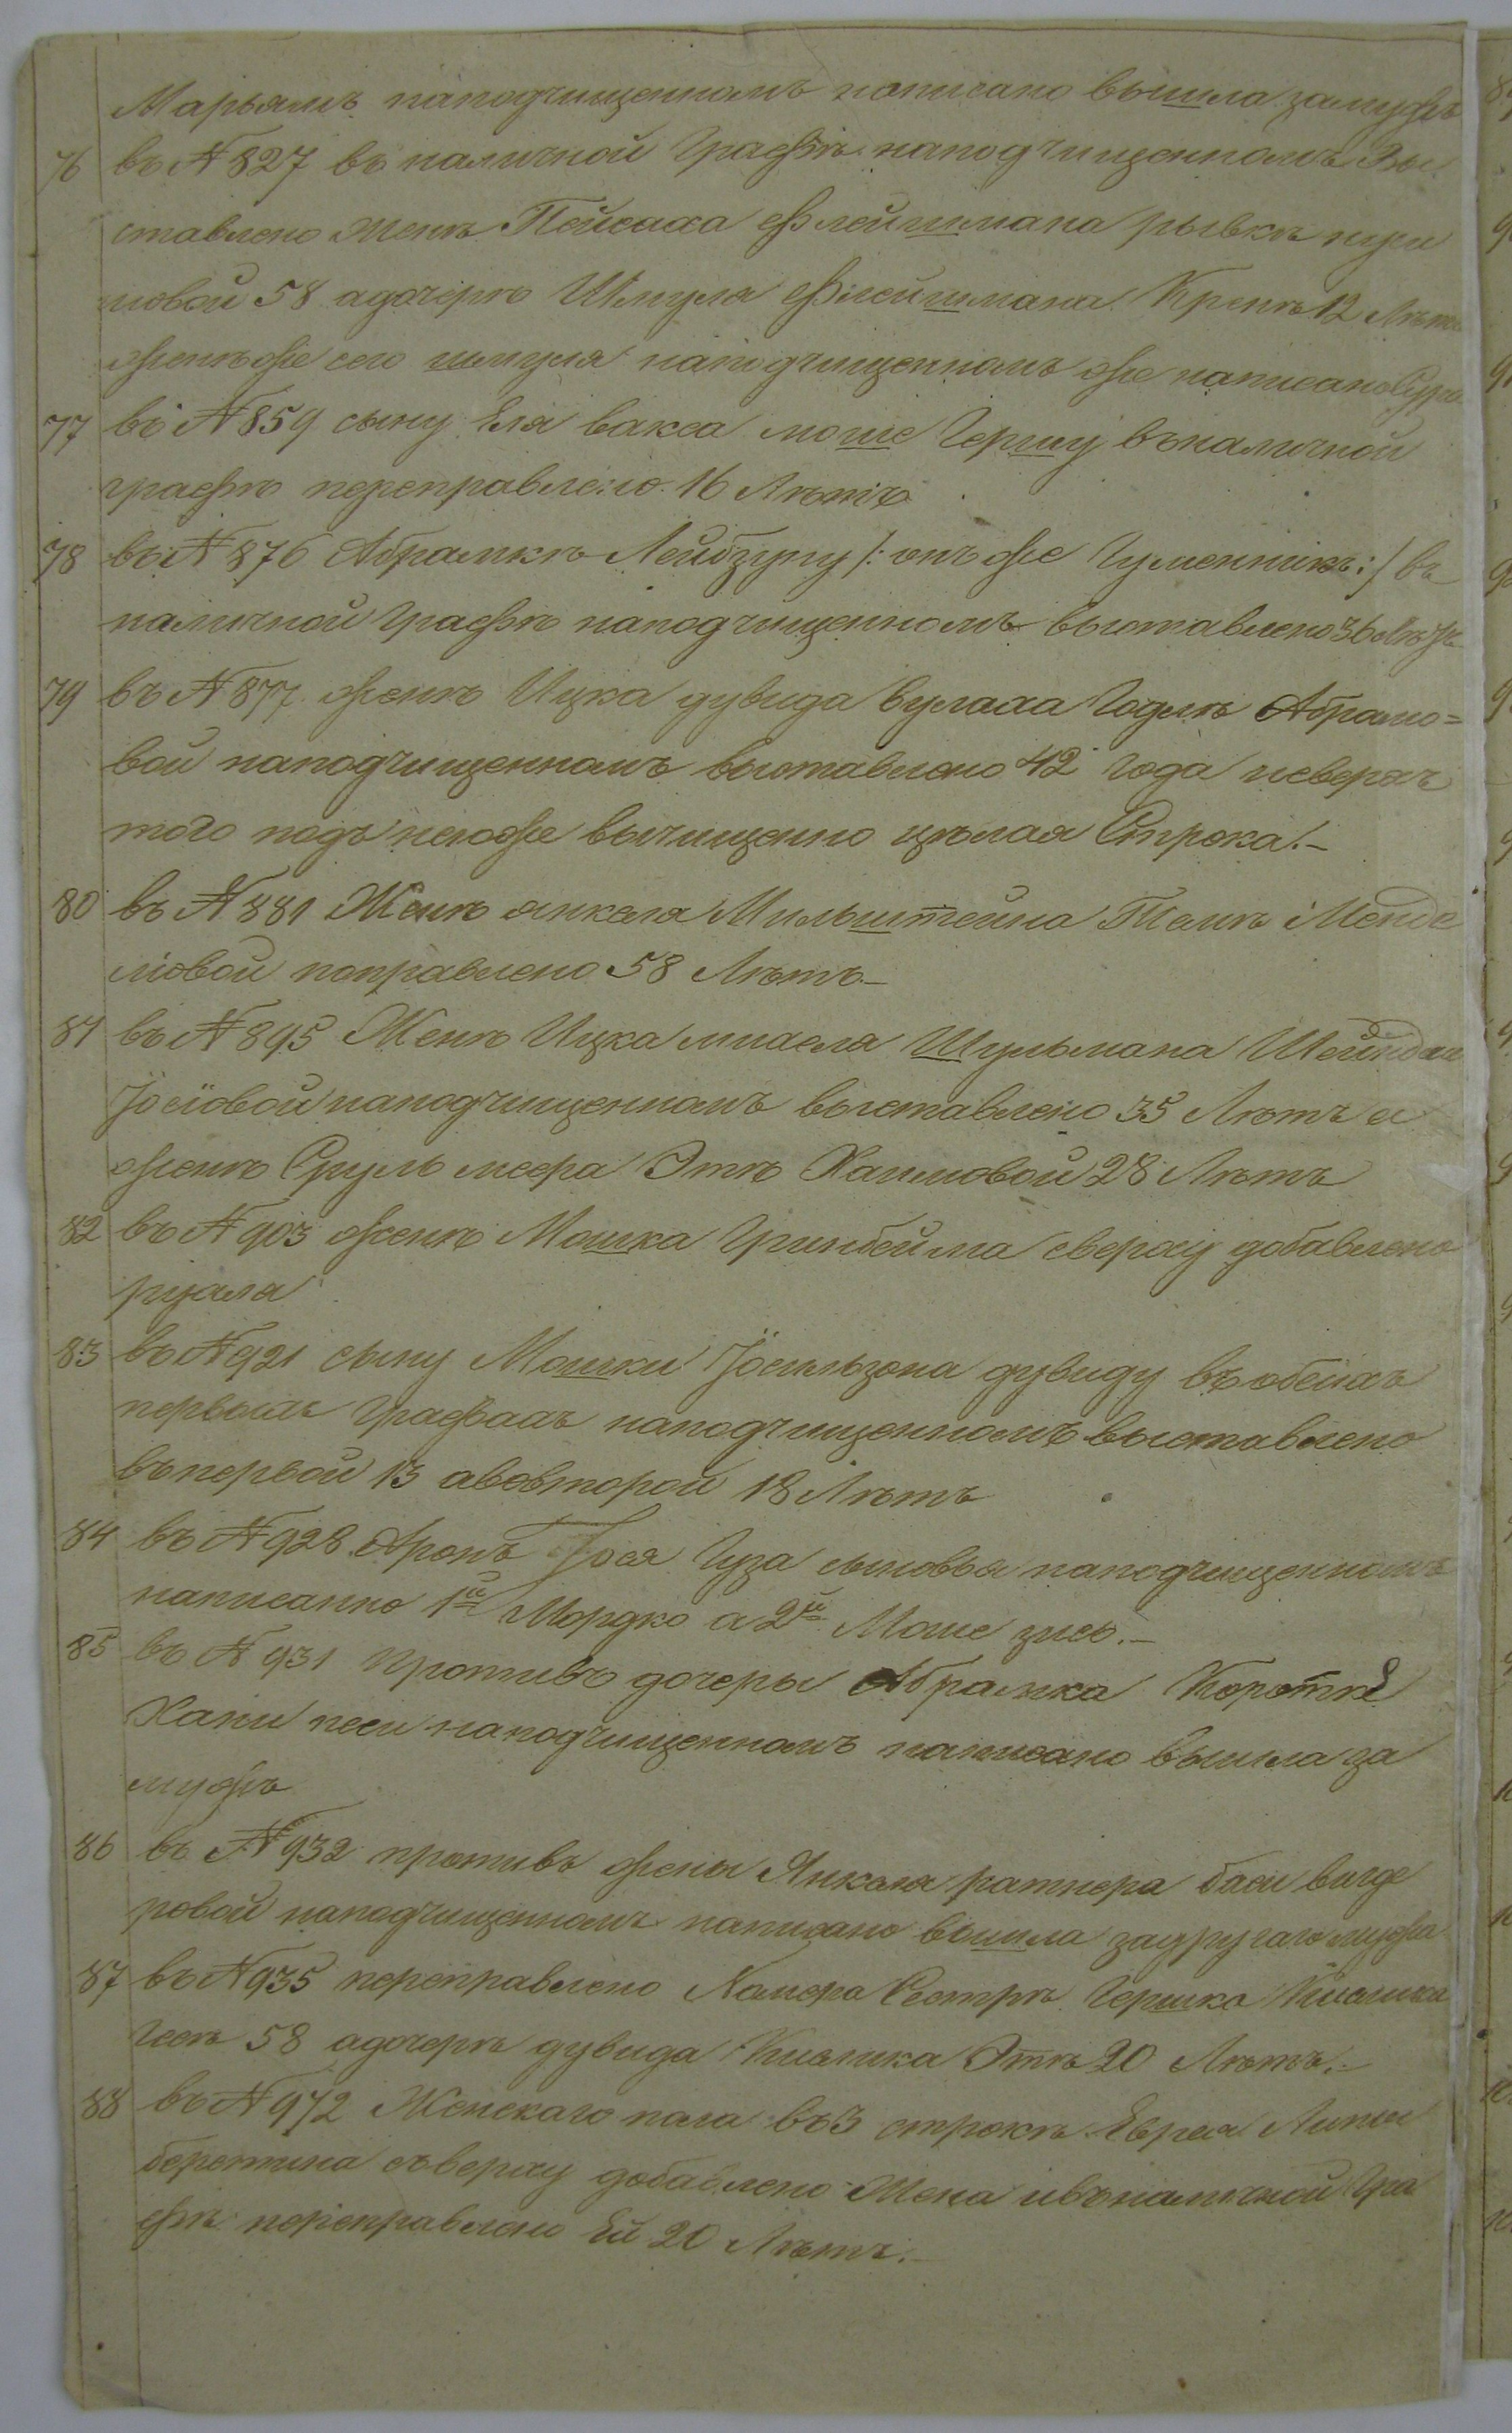 Марьямъ наподчищенномъ написано вышла замужъ
76 въ № 827 въ наличной Графѣ наподчищенномъ Вы
ставлено Женѣ Пейсаха Флейшмана рывкѣ
мовой 58 адочерѣ Шмуля Флейшмана Кренѣ 12 Лѣтъ
женѣ же сего шмуля наподчищенномъ же написано Сура
77 въ № 859 сыну Еля вакса моше Гершу въналичной
графѣ переправлено 16 Лѣтъ
78 въ № 876 Абрамкѣ Лейбзуну /: онъ же Гуменникъ :/ въ
наличной Графѣ наподчищенномъ выставлено 36 Лѣтъ
79 въ № 877 женѣ Ицка дувида вулаха Годлѣ Абрамо=
вой наподчищенномъ выставлено 42 года исверхъ
того подъ неюже вычищенно цѣлая Строка.–
80 въ № 881 Женѣ янкеля Мильштейна Темѣ Менде
ліовой поправлено 58 Лѣтъ.–
81 въ № 895 Женѣ Ицка михеля Шульмана Шейндли
Іосіовой наподчищенномъ выставлено 35 Лѣтъ а
женѣ Сруль меера Этѣ Хаимовой 28 Лѣтъ
82 въ № 903 женѣ Мошка Гринбейма сверху добавлено
рухля
83 въ № 921 сыну Мошки Іосильзона дувиду въ обеихъ
первыхъ Графахъ наподчищенномъ выставлено
въпервой 13 авовторой 18 Лѣтъ
84 въ № 928 Аронъ Іося Гуза сыновья наподчищенномъ
написанно 1й Мордко а 2й Моше зись.–
85 въ № 931 Противъ дочеры Абрамка Коротке
Хани песи наподчищенномъ написано вышла за
мужъ
86 въ № 932 противъ жены Янкеля ратнера баси вигде
ровой наподчищенномъ написано вышла задругаго мужа
87 въ № 935 переправлено Намера Сестрѣ Гершка Кислика
Гесѣ 58 адочерѣ дувида Кислика Этѣ 20 Лѣтъ.–
88 въ № 972 Женскаго пола въ 3 строкѣ Еврея Липы
беренштина съверху добавлено Жена ивъналичной Гра
фѣ переправлено Ей 20 Лѣтъ.–